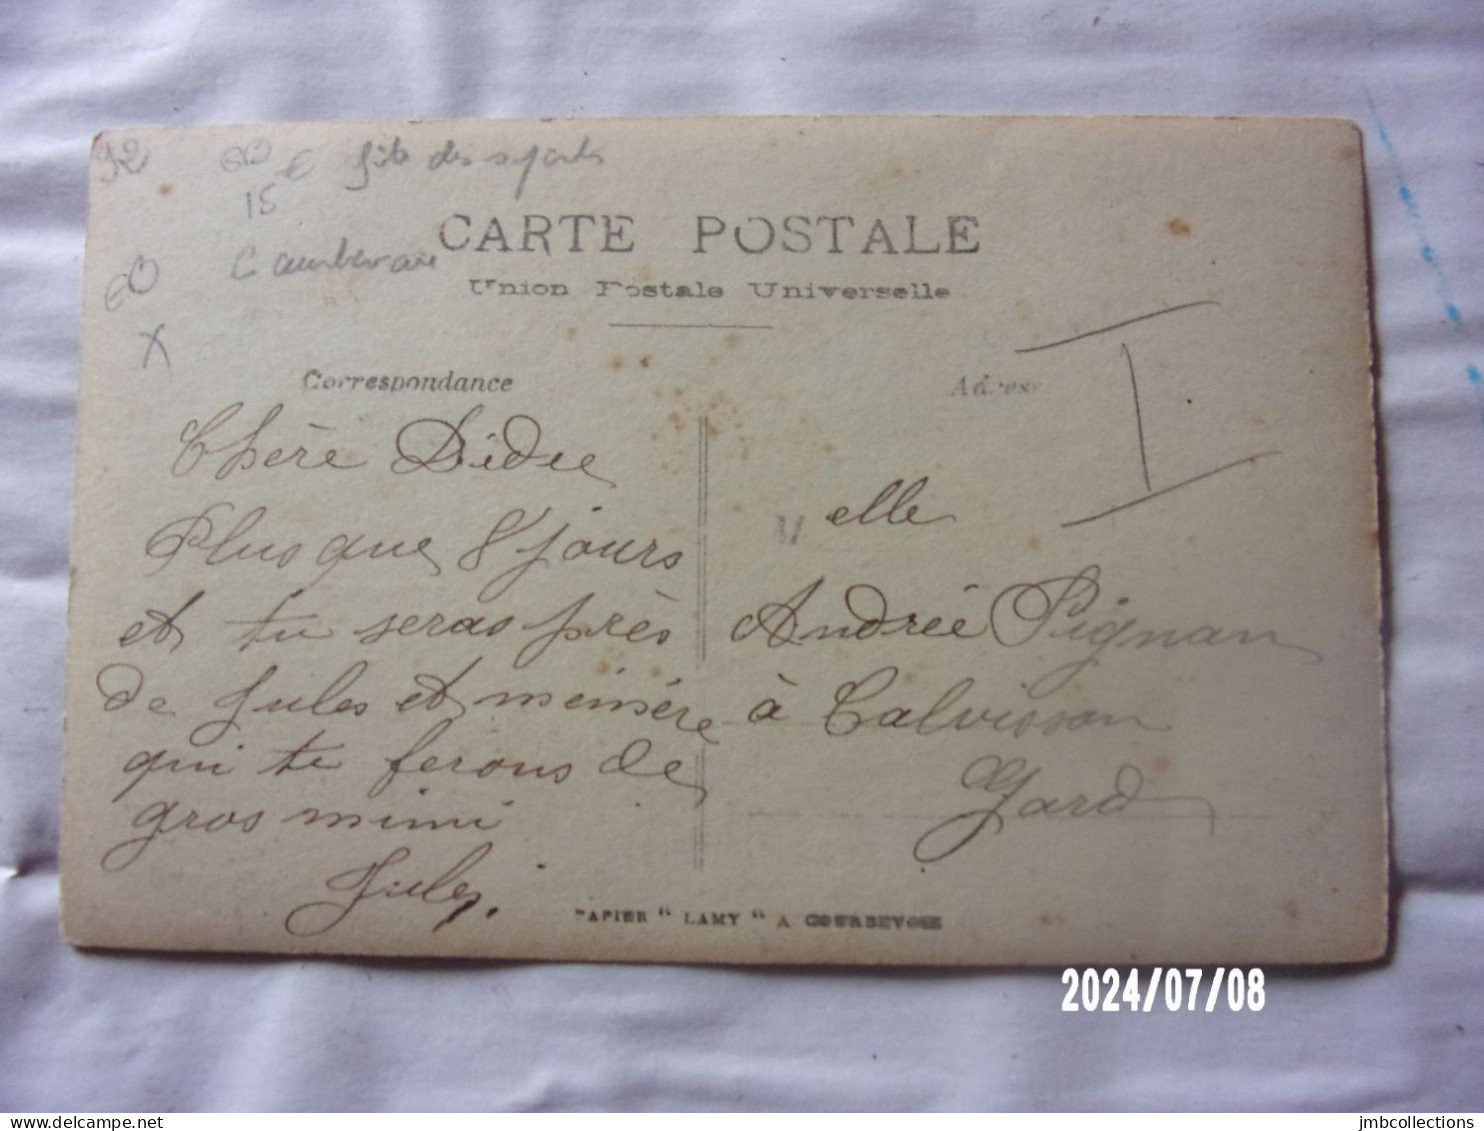 92 60 15 € fête des sports
CARTE POSTALE
Courbevoie
Union Postale Universelle
60
X
Correspondance
Adresse
Chère Dédée
Plus que 8 jours
et tu seras près
de Jules et mémère
qui te ferons de
gros mimi
Jules.
I
Melle
Andrée Pignan
à Calvisson
Gard
PAPIER " LAMY " A COURBEVOIE
2024/07/08
delcampe.net
jmbcollections